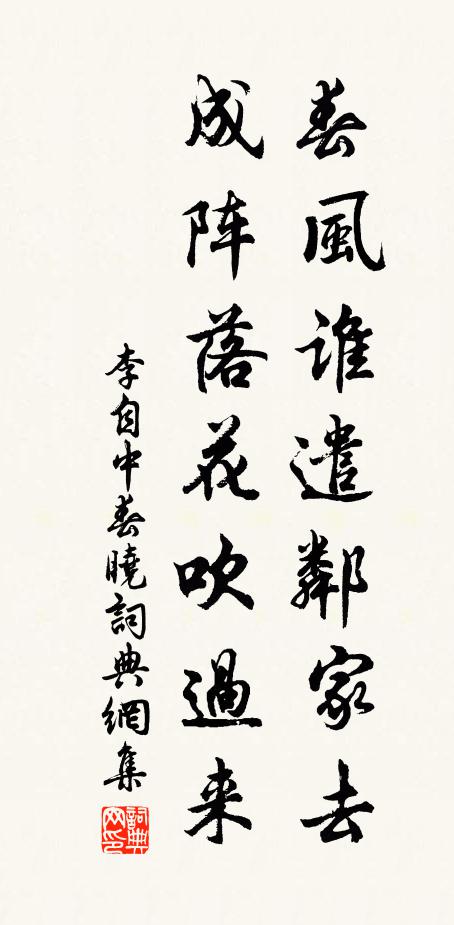 春風谁遣鄰家去
成阵落花吹過来
李自中春曉詞典網集
詞典
网印